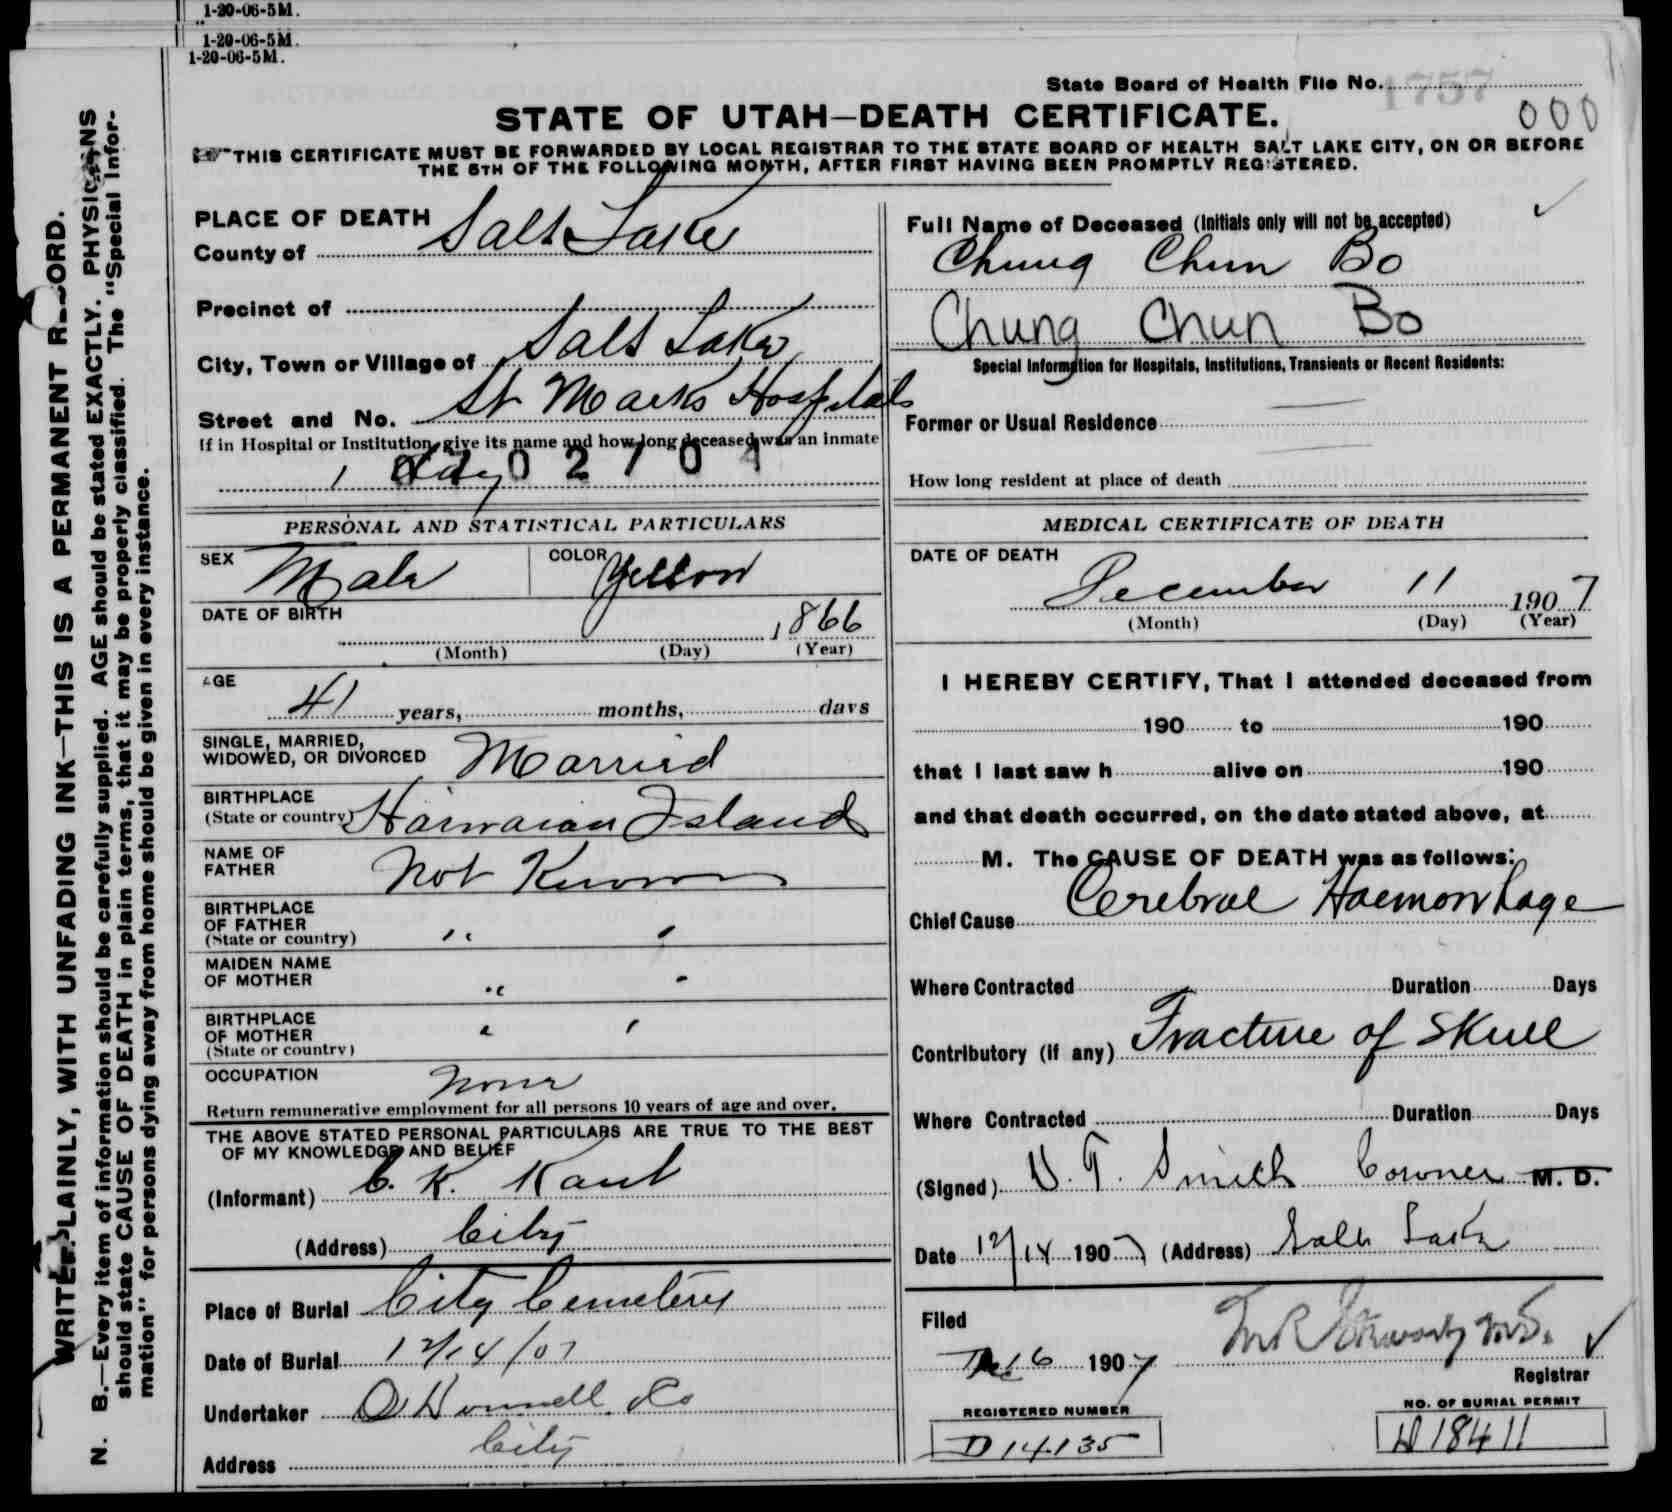 1-20-06-5M.
1-20-06-5M.
1-20-06-5M.
State Board of Health File No. 1757
000
STATE OF UTAH—DEATH CERTIFICATE.
THIS CERTIFICATE MUST BE FORWARDED BY LOCAL REGISTRAR TO THE STATE BOARD OF HEALTH SALT LAKE CITY, ON OR BEFORE
THE 5TH OF THE FOLLOWING MONTH, AFTER FIRST HAVING BEEN PROMPTLY REGISTERED.
WRITE PLAINLY, WITH UNFADING INK—THIS IS A PERMANENT RECORD.
N. B.—Every item of information should be carefully supplied. AGE should be stated EXACTLY. PHYSICIANS
should state CAUSE OF DEATH in plain terms, that it may be properly classified. The "Special Infor-
mation" for persons dying away from home should be given in every instance.
PLACE OF DEATH
County of Salt Lake
Precinct of
City, Town or Village of Salt Lake
Street and No. St Marks Hospital
If in Hospital or Institution, give its name and how long deceased was an inmate
1 day
PERSONAL AND STATISTICAL PARTICULARS
SEX Male COLOR Yellow
DATE OF BIRTH 1866
(Month) (Day) (Year)
AGE
41 years, months, days
SINGLE, MARRIED,
WIDOWED, OR DIVORCED Married
BIRTHPLACE
(State or country) Hawaian Islands
NAME OF
FATHER Not Known
BIRTHPLACE
OF FATHER
(State or country) " "
MAIDEN NAME
OF MOTHER " "
BIRTHPLACE
OF MOTHER
(State or country) " "
OCCUPATION None
Return remunerative employment for all persons 10 years of age and over.
THE ABOVE STATED PERSONAL PARTICULARS ARE TRUE TO THE BEST
OF MY KNOWLEDGE AND BELIEF
(Informant) C. K. Kaut
(Address) City
Place of Burial City Cemetery
Date of Burial 12/14/07
Undertaker O'Donnell Co
Address City
Full Name of Deceased (Initials only will not be accepted)
Chung Chun Bo
Chung Chun Bo
Special Information for Hospitals, Institutions, Transients or Recent Residents:
Former or Usual Residence
How long resident at place of death
MEDICAL CERTIFICATE OF DEATH
DATE OF DEATH
December 11 1907
(Month) (Day) (Year)
I HEREBY CERTIFY, That I attended deceased from
190 to 190
that I last saw h alive on 190
and that death occurred, on the date stated above, at
M. The CAUSE OF DEATH was as follows:
Chief Cause Cerebral Haemorrhage
Where Contracted Duration Days
Contributory (if any) Fracture of Skull
Where Contracted Duration Days
(Signed) Smith Coroner M. D.
Date 12/14 1907 (Address) Salt Lake
Filed
Dec 16 1907
Registrar
REGISTERED NUMBER
D14135
NO. OF BURIAL PERMIT
D18411